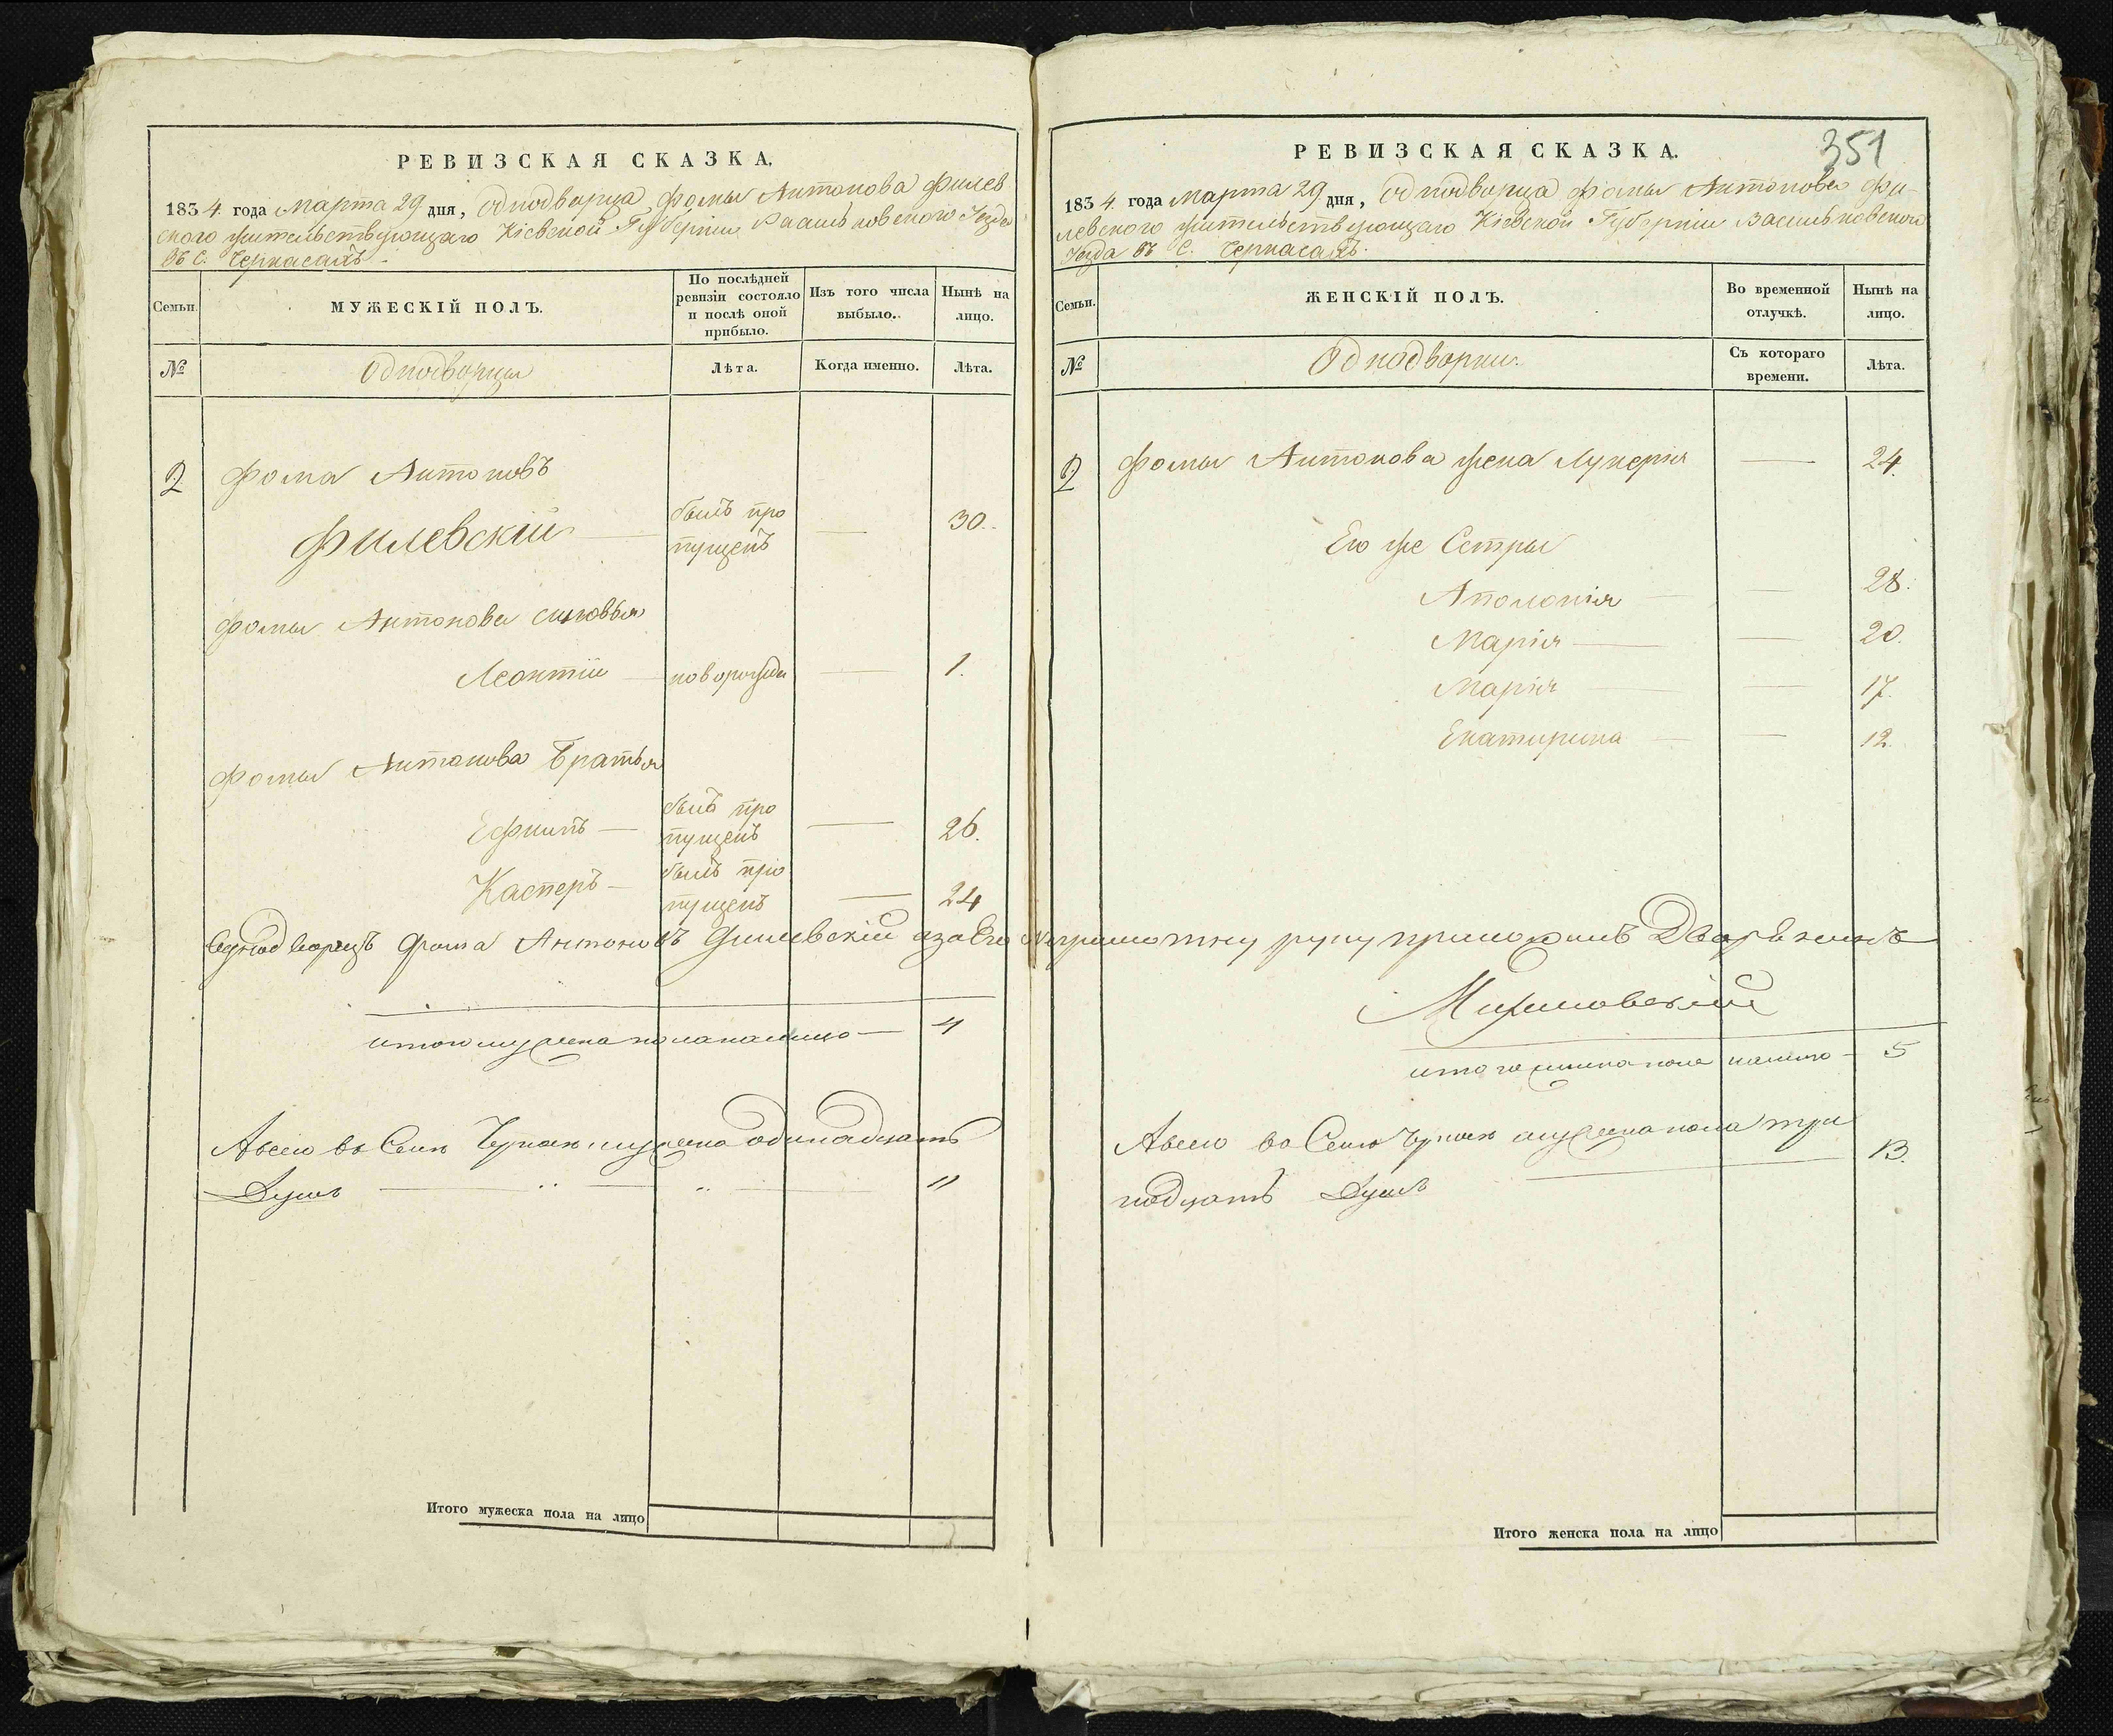 РЕВИЗСКАЯ СКАЗКА.
1834. года Марта 29 дня, Однодворца Фомы Антонова Филев
ского жительствующаго Кіевской Губерніи Васильковского Уезда
въ С. Черкасахъ.
Семьи.
МУЖЕСКІЙ ПОЛЪ.
По послѣдней ревизіи состояло и послѣ оной прибыло.
Изъ того числа выбыло.
Нынѣ на лицо.
№
Однодворцы
Лѣта.
Когда именно.
Лѣта.
2 Фома Антоновъ
Филевскій — былъ про
пущенъ — 30.
Фомы Антонова сыновья
Леонтій — новорожден — 1.
Фомы Антонова Братья
Ефимъ — былъ про
пущенъ — 26.
Касперъ — былъ про
пущенъ — 24
Однодворецъ Фома Антоновъ Филевскій а за Его Неграмотну руку приложилъ Дворянинъ
итого мужеска пола на лицо — 4
А всего въ Селе Черкас мужеска одинадцать
Душъ — 11
Итого мужеска пола на лицо
РЕВИЗСКАЯ СКАЗКА.
351
1834. года Марта 29 дня, Однодворца Фомы Антонова Фи-
левского жительствующаго Кіевской Губерніи Васильковского
Уезда въ С. Черкасахъ.
Семьи.
ЖЕНСКІЙ ПОЛЪ.
Во временной отлучкѣ.
Нынѣ на лицо.
№
Однодворки.
Съ котораго времени.
Лѣта.
2 Фомы Антонова жена Лукерія — 24.
Его же Сестры
Аполонія — 28.
Марія — 20.
Марія — 17.
Екатирина — 12.
итого женска пола налицо — 5
А всего во Селе Черкас мужеска пола три
надцать Душъ — 13.
Итого женска пола на лицо